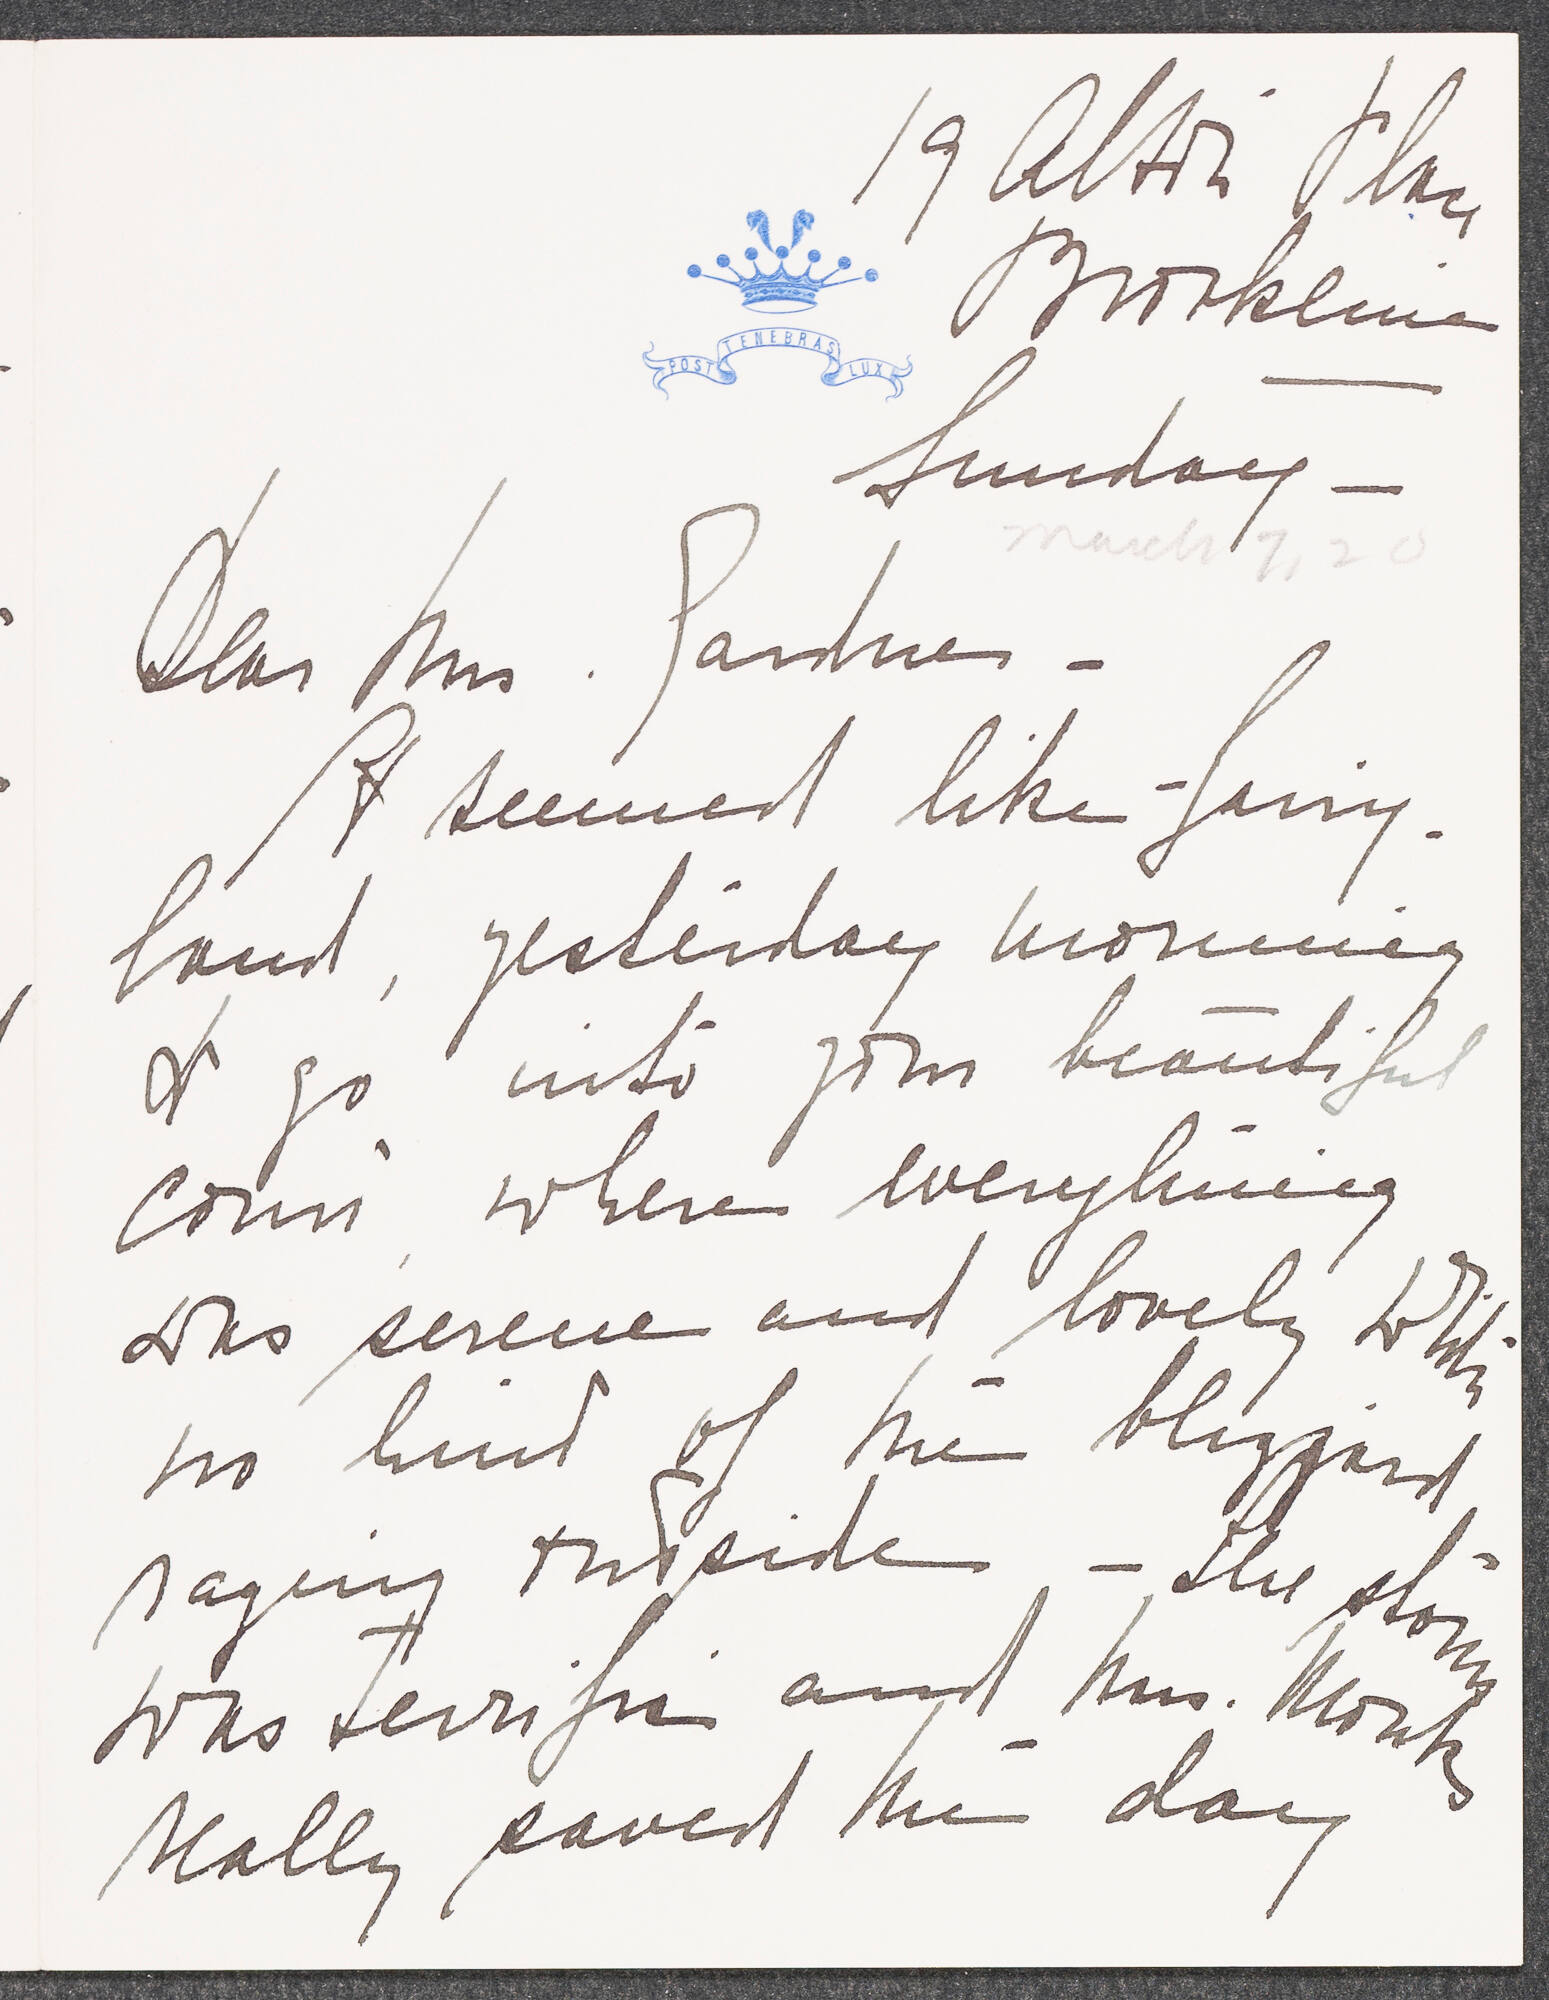 19 Alton Place
Brookline
POST TENEBRAS LUX
Sunday —
March 7, 20
Dear Mrs. Gardner -
It seemed like fairy-
land, yesterday morning
to go into your beautiful
court, where everything
was serene and lovely with
no hint of the blizzard
raging outside - the storm
was terrific and Mrs. Monks
really saved the day